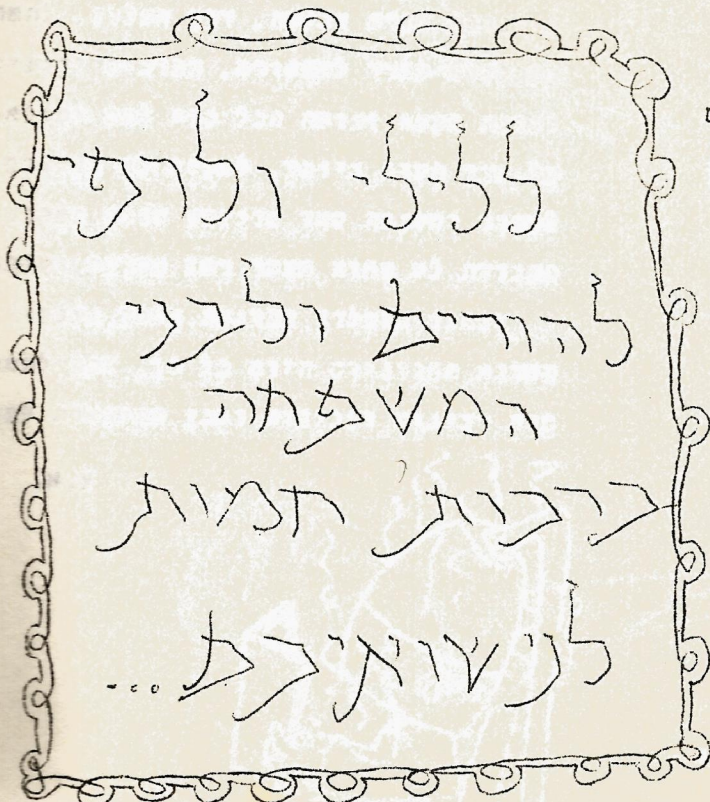 ללילי ולרפי
להורים ולבני
המשפחה
ברכות חמות
לנישואיכם...